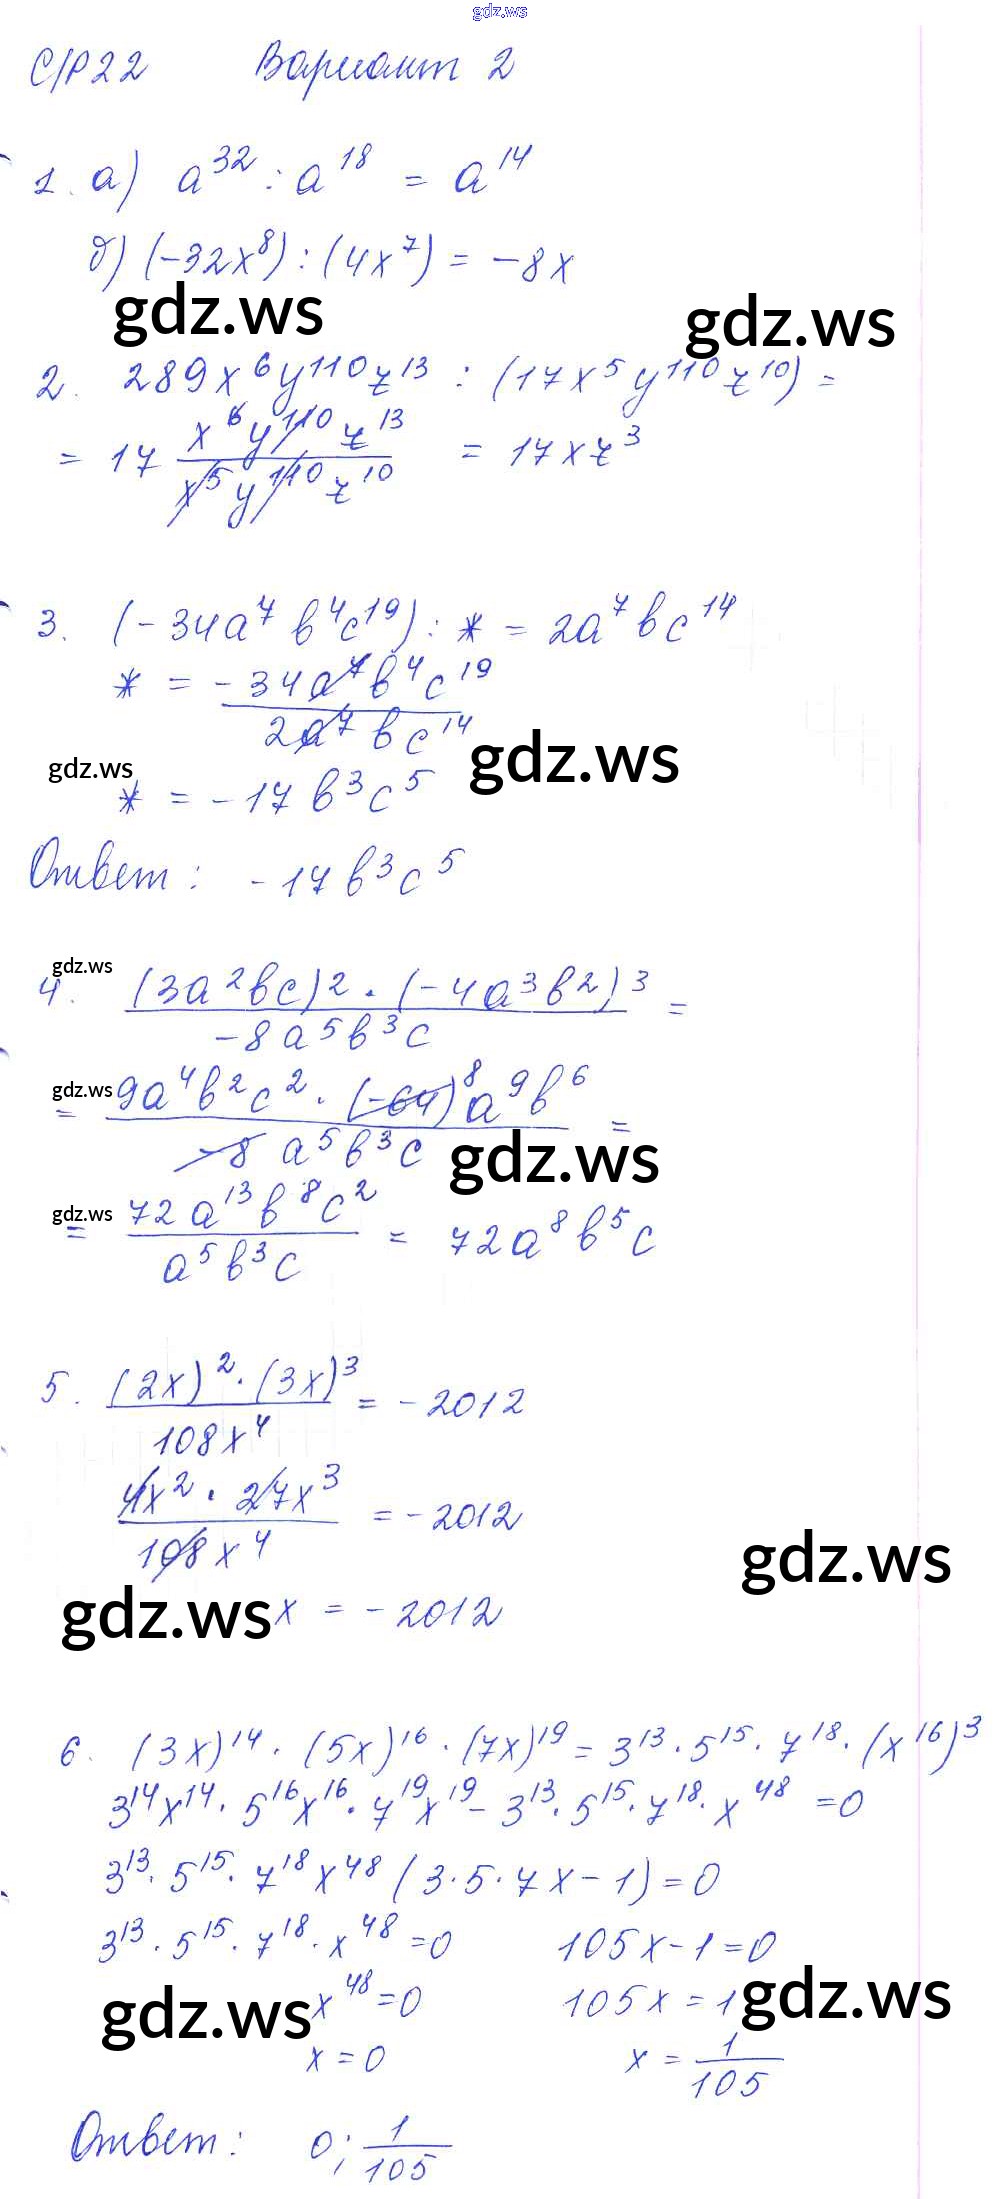 gdz.ws
С/Р22 Вариант 2
1. а) a^32 : a^18 = a^14
б) (-32x^8) : (4x^7) = -8x
gdz.ws gdz.ws
2. 289x^6y^110z^13 : (17x^5y^110z^10) =
= 17 x^6y^110z^13 / x^5y^110z^10 = 17xz^3
3. (-34a^7b^4c^19) : * = 2a^7bc^14
* = -34a^7b^4c^19 / 2a^7bc^14
gdz.ws gdz.ws
* = -17b^3c^5
Ответ: -17b^3c^5
gdz.ws
4. (3a^2bc)^2 · (-4a^3b^2)^3 / -8a^5b^3c =
gdz.ws
= 9a^4b^2c^2 · (-64)^8 a^9b^6 / -8 a^5b^3c =
gdz.ws
gdz.ws
= 72a^13b^8c^2 / a^5b^3c = 72a^8b^5c
5. (2x)^2 · (3x)^3 / 108x^4 = -2012
4x^2 · 27x^3 / 108x^4 = -2012
gdz.ws
gdz.ws
x = -2012
6. (3x)^14 · (5x)^16 · (7x)^19 = 3^13 · 5^15 · 7^18 · (x^16)^3
3^14x^14 · 5^16x^16 · 7^19x^19 - 3^13 · 5^15 · 7^18 · x^48 = 0
3^13 · 5^15 · 7^18x^48 (3·5·7x-1) = 0
3^13 · 5^15 · 7^18 · x^48 = 0 105x-1=0
gdz.ws x^48 = 0 105x = 1 gdz.ws
x = 0 x = 1/105
Ответ: 0; 1/105